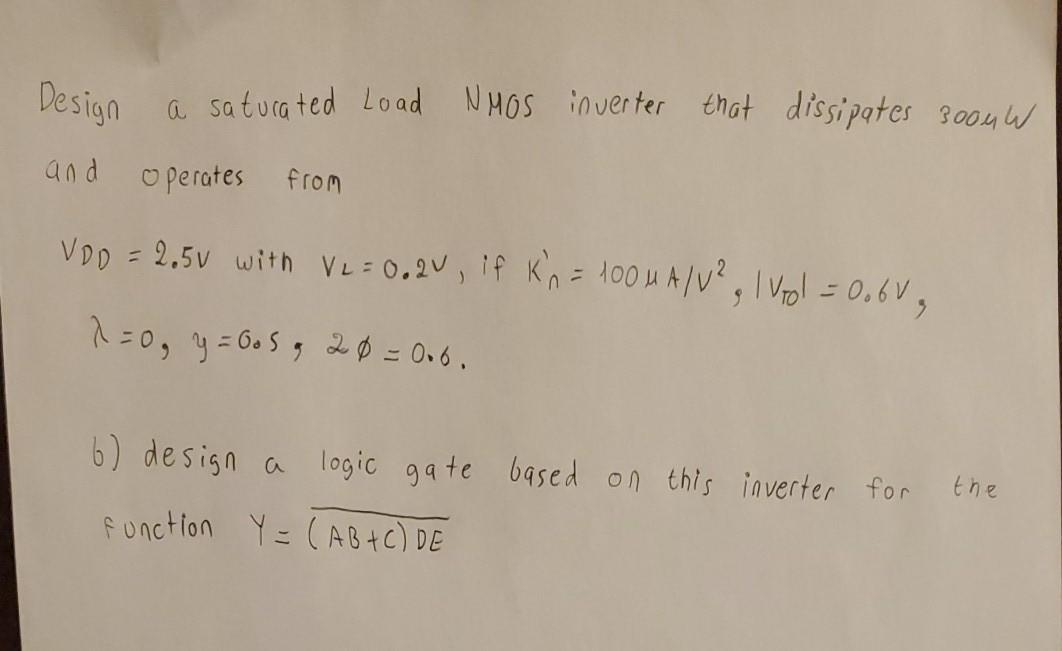 Design a saturated Load NMOS inverter that dissipates 300μW
and operates from
VDD = 2.5V with VL = 0.2V, if K'n = 100 μA/V², |VTO| = 0.6V,
λ = 0, y = 0.5, 2Ø = 0.6.
b) design a logic gate based on this inverter for the
function Y = \overline{(AB+C)DE}